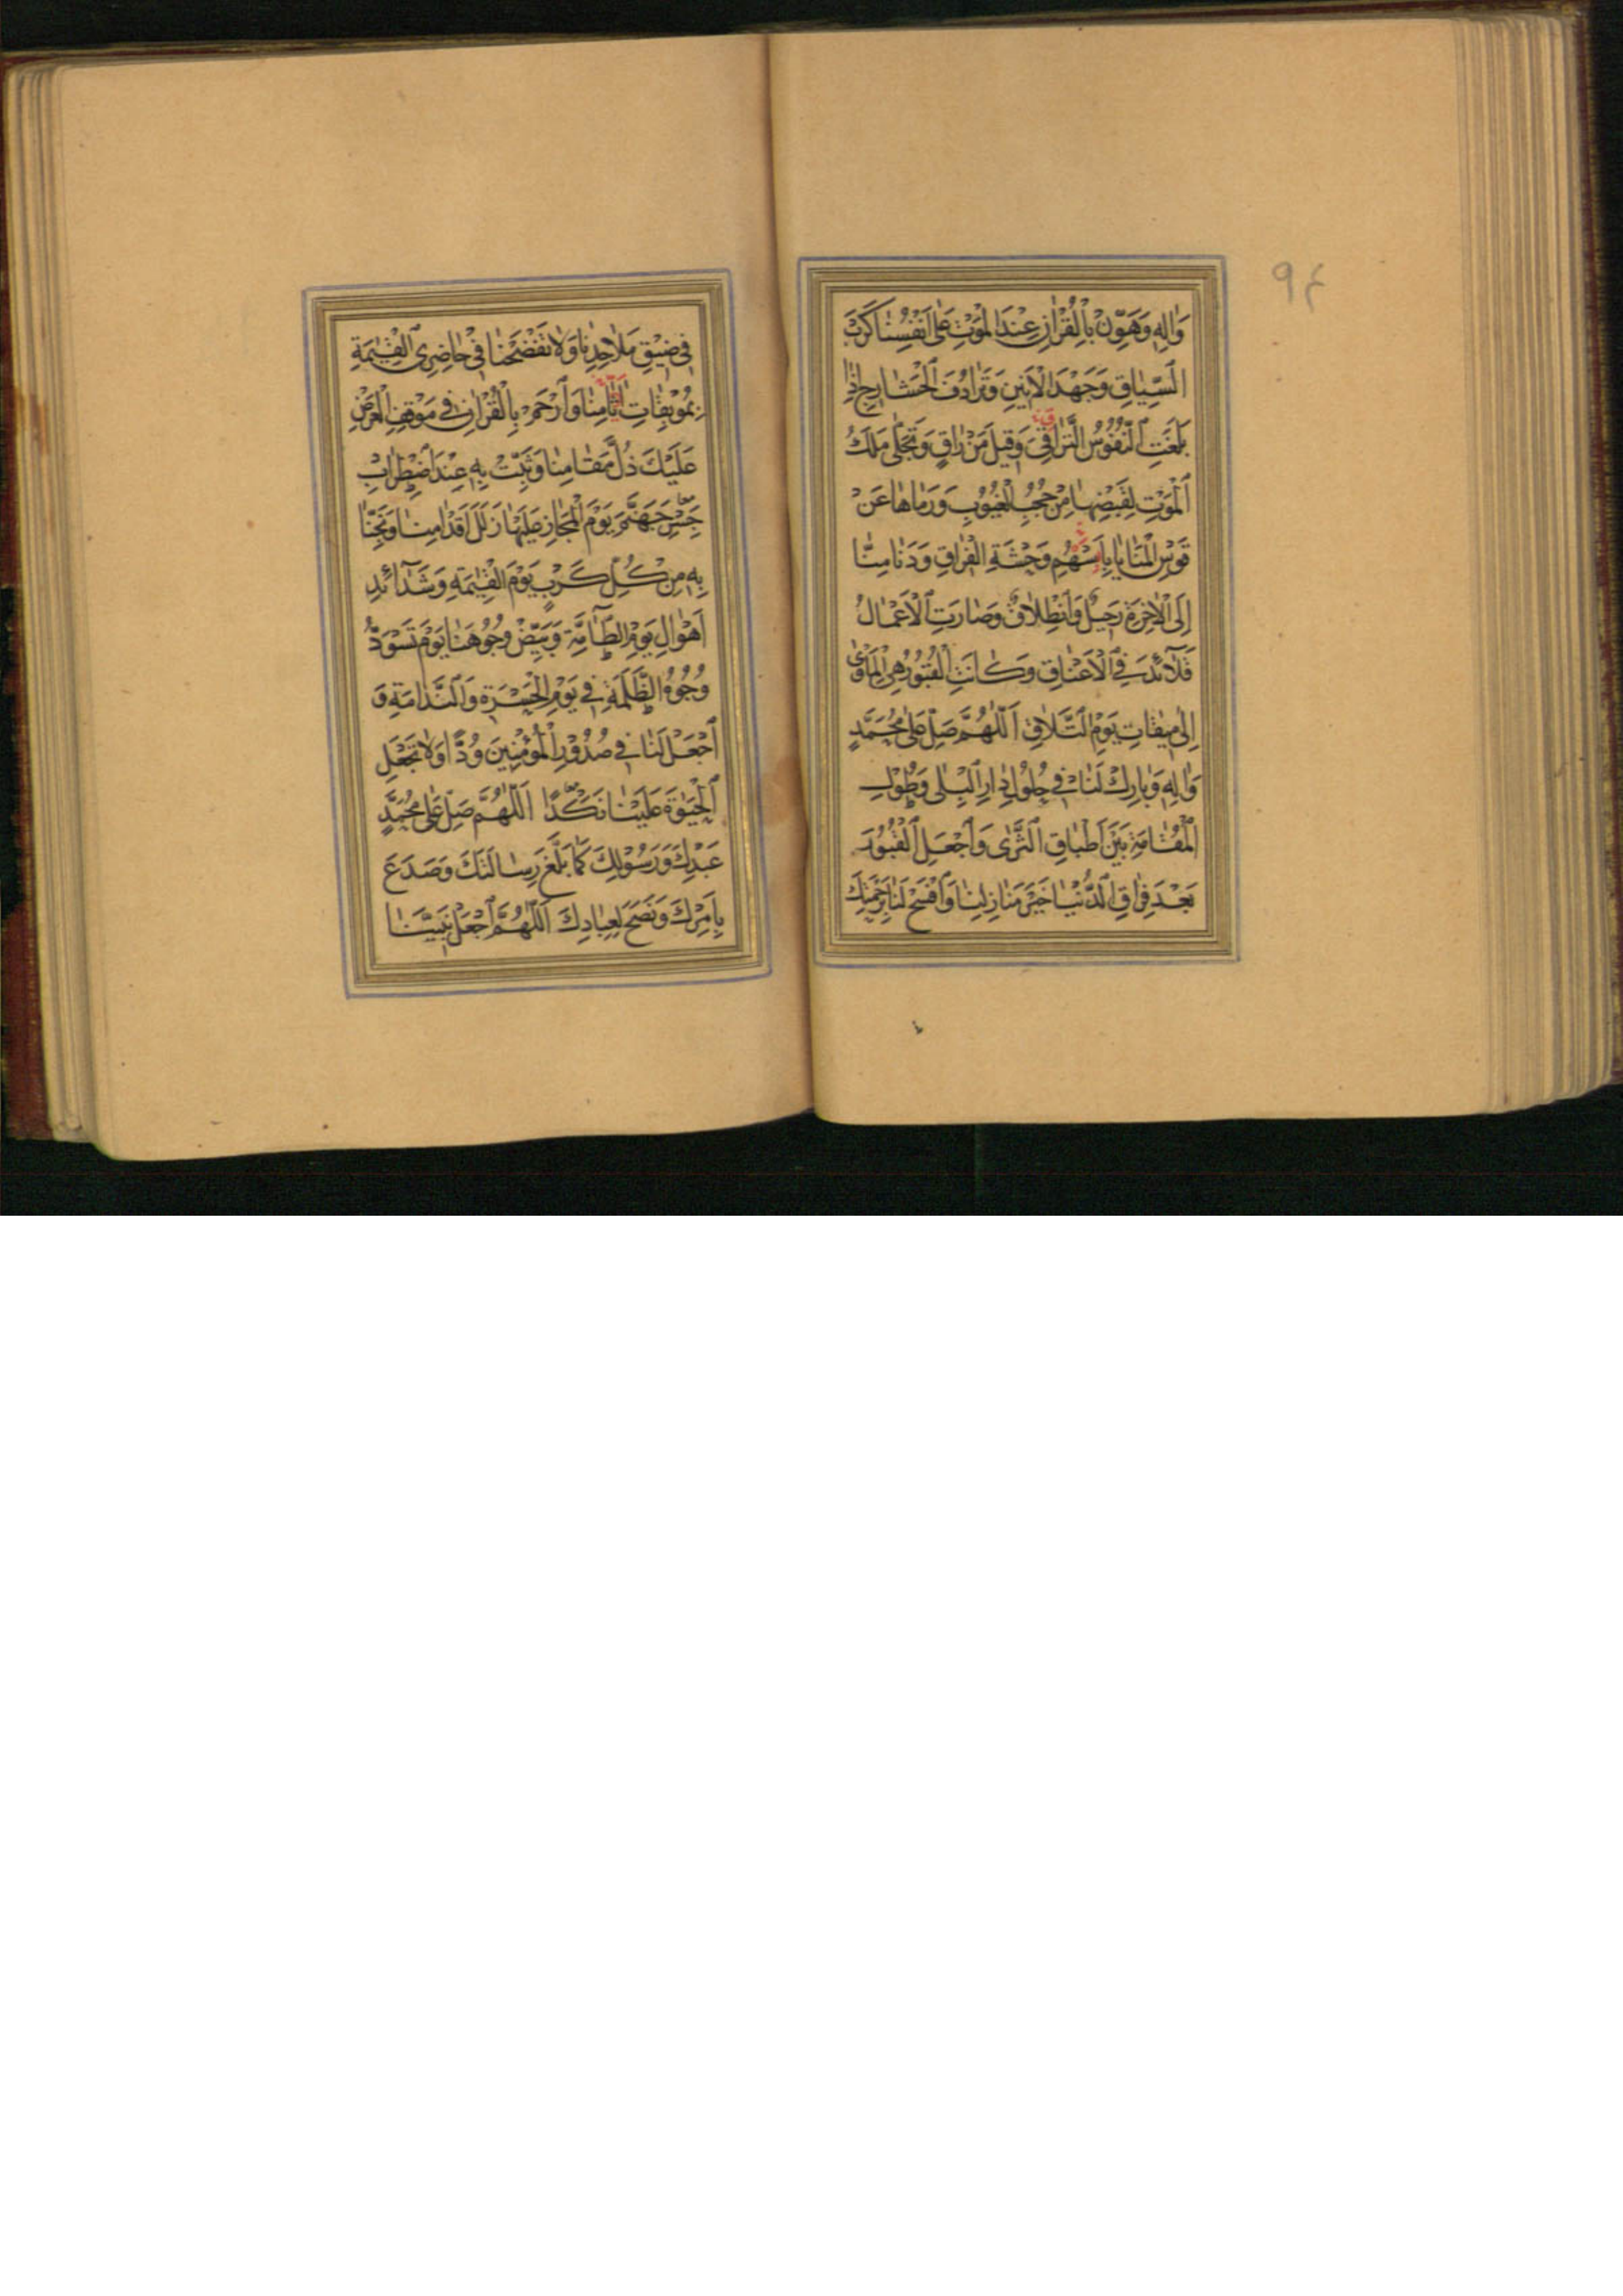 ۹۴
وَالِهِ وَهَوِّنْ بِالْقُرْاٰنِ عِنْدَ الْمَوْتِ عَلٰى اَنْفُسِنَا كَرْبَ
السِّيَاقِ وَجَهْدَ الْاَنِينِ وَتَرَادُفَ الْحَشَارِجِ اِذَا
بَلَغَتِ النُّفُوسُ التَّرَاقِيَ وَقِيلَ مَنْ رَاقٍ وَتَجَلّٰى مَلَكُ
الْمَوْتِ لِقَبْضِهَا مِنْ حُجُبِ الْغُيُوبِ وَرَمَاهَا عَنْ
قَوْسِ الْمَنَايَا بِاَسْهُمِ وَحْشَةِ الْفِرَاقِ وَدَنَا مِنَّا
اِلَى الْاٰخِرَةِ رَحِيلٌ وَانْطِلَاقٌ وَصَارَتِ الْاَعْمَالُ
قَلَآئِدَ فِي الْاَعْنَاقِ وَكَانَتِ الْقُبُورُ هِيَ الْمَاْوٰى
اِلٰى مِيقَاتِ يَوْمِ التَّلَاقِ اَللّٰهُمَّ صَلِّ عَلٰى مُحَمَّدٍ
وَالِهِ وَبَارِكْ لَنَا فِي حُلُولِ دَارِ الْبِلٰى وَطُولِ
الْمُقَامَةِ بَيْنَ اَطْبَاقِ الثَّرٰى وَاجْعَلِ الْقُبُورَ
بَعْدَ فِرَاقِ الدُّنْيَا خَيْرَ مَنَازِلِنَا وَافْسَحْ لَنَا بِرَحْمَتِكَ
فِي ضِيقِ مَلَاحِدِنَا وَلَا تَفْضَحْنَا فِي حَاضِرِي الْقِيٰمَةِ
بِمُوبِقَاتِ اٰثَامِنَا وَارْحَمْ بِالْقُرْاٰنِ فِي مَوْقِفِ الْعَرْضِ
عَلَيْكَ ذُلَّ مَقَامِنَا وَثَبِّتْ بِهِ عِنْدَ اضْطِرَابِ
جِسْرِ جَهَنَّمَ يَوْمَ الْمَجَازِ عَلَيْهَا زَلَلَ اَقْدَامِنَا وَنَجِّنَا
بِهِ مِنْ كُلِّ كَرْبٍ يَوْمَ الْقِيٰمَةِ وَشَدَآئِدِ
اَهْوَالِ يَوْمِ الطَّآمَّةِ وَبَيِّضْ وُجُوهَنَا يَوْمَ تَسْوَدُّ
وُجُوهُ الظَّلَمَةِ فِي يَوْمِ الْحَسْرَةِ وَالنَّدَامَةِ وَ
اجْعَلْ لَنَا فِي صُدُورِ الْمُؤْمِنِينَ وُدًّا وَلَا تَجْعَلِ
الْحَيٰوةَ عَلَيْنَا نَكَدًا اَللّٰهُمَّ صَلِّ عَلٰى مُحَمَّدٍ
عَبْدِكَ وَرَسُولِكَ كَمَا بَلَّغَ رِسَالَتَكَ وَصَدَعَ
بِاَمْرِكَ وَنَصَحَ لِعِبَادِكَ اَللّٰهُمَّ اجْعَلْ نَبِيَّنَا